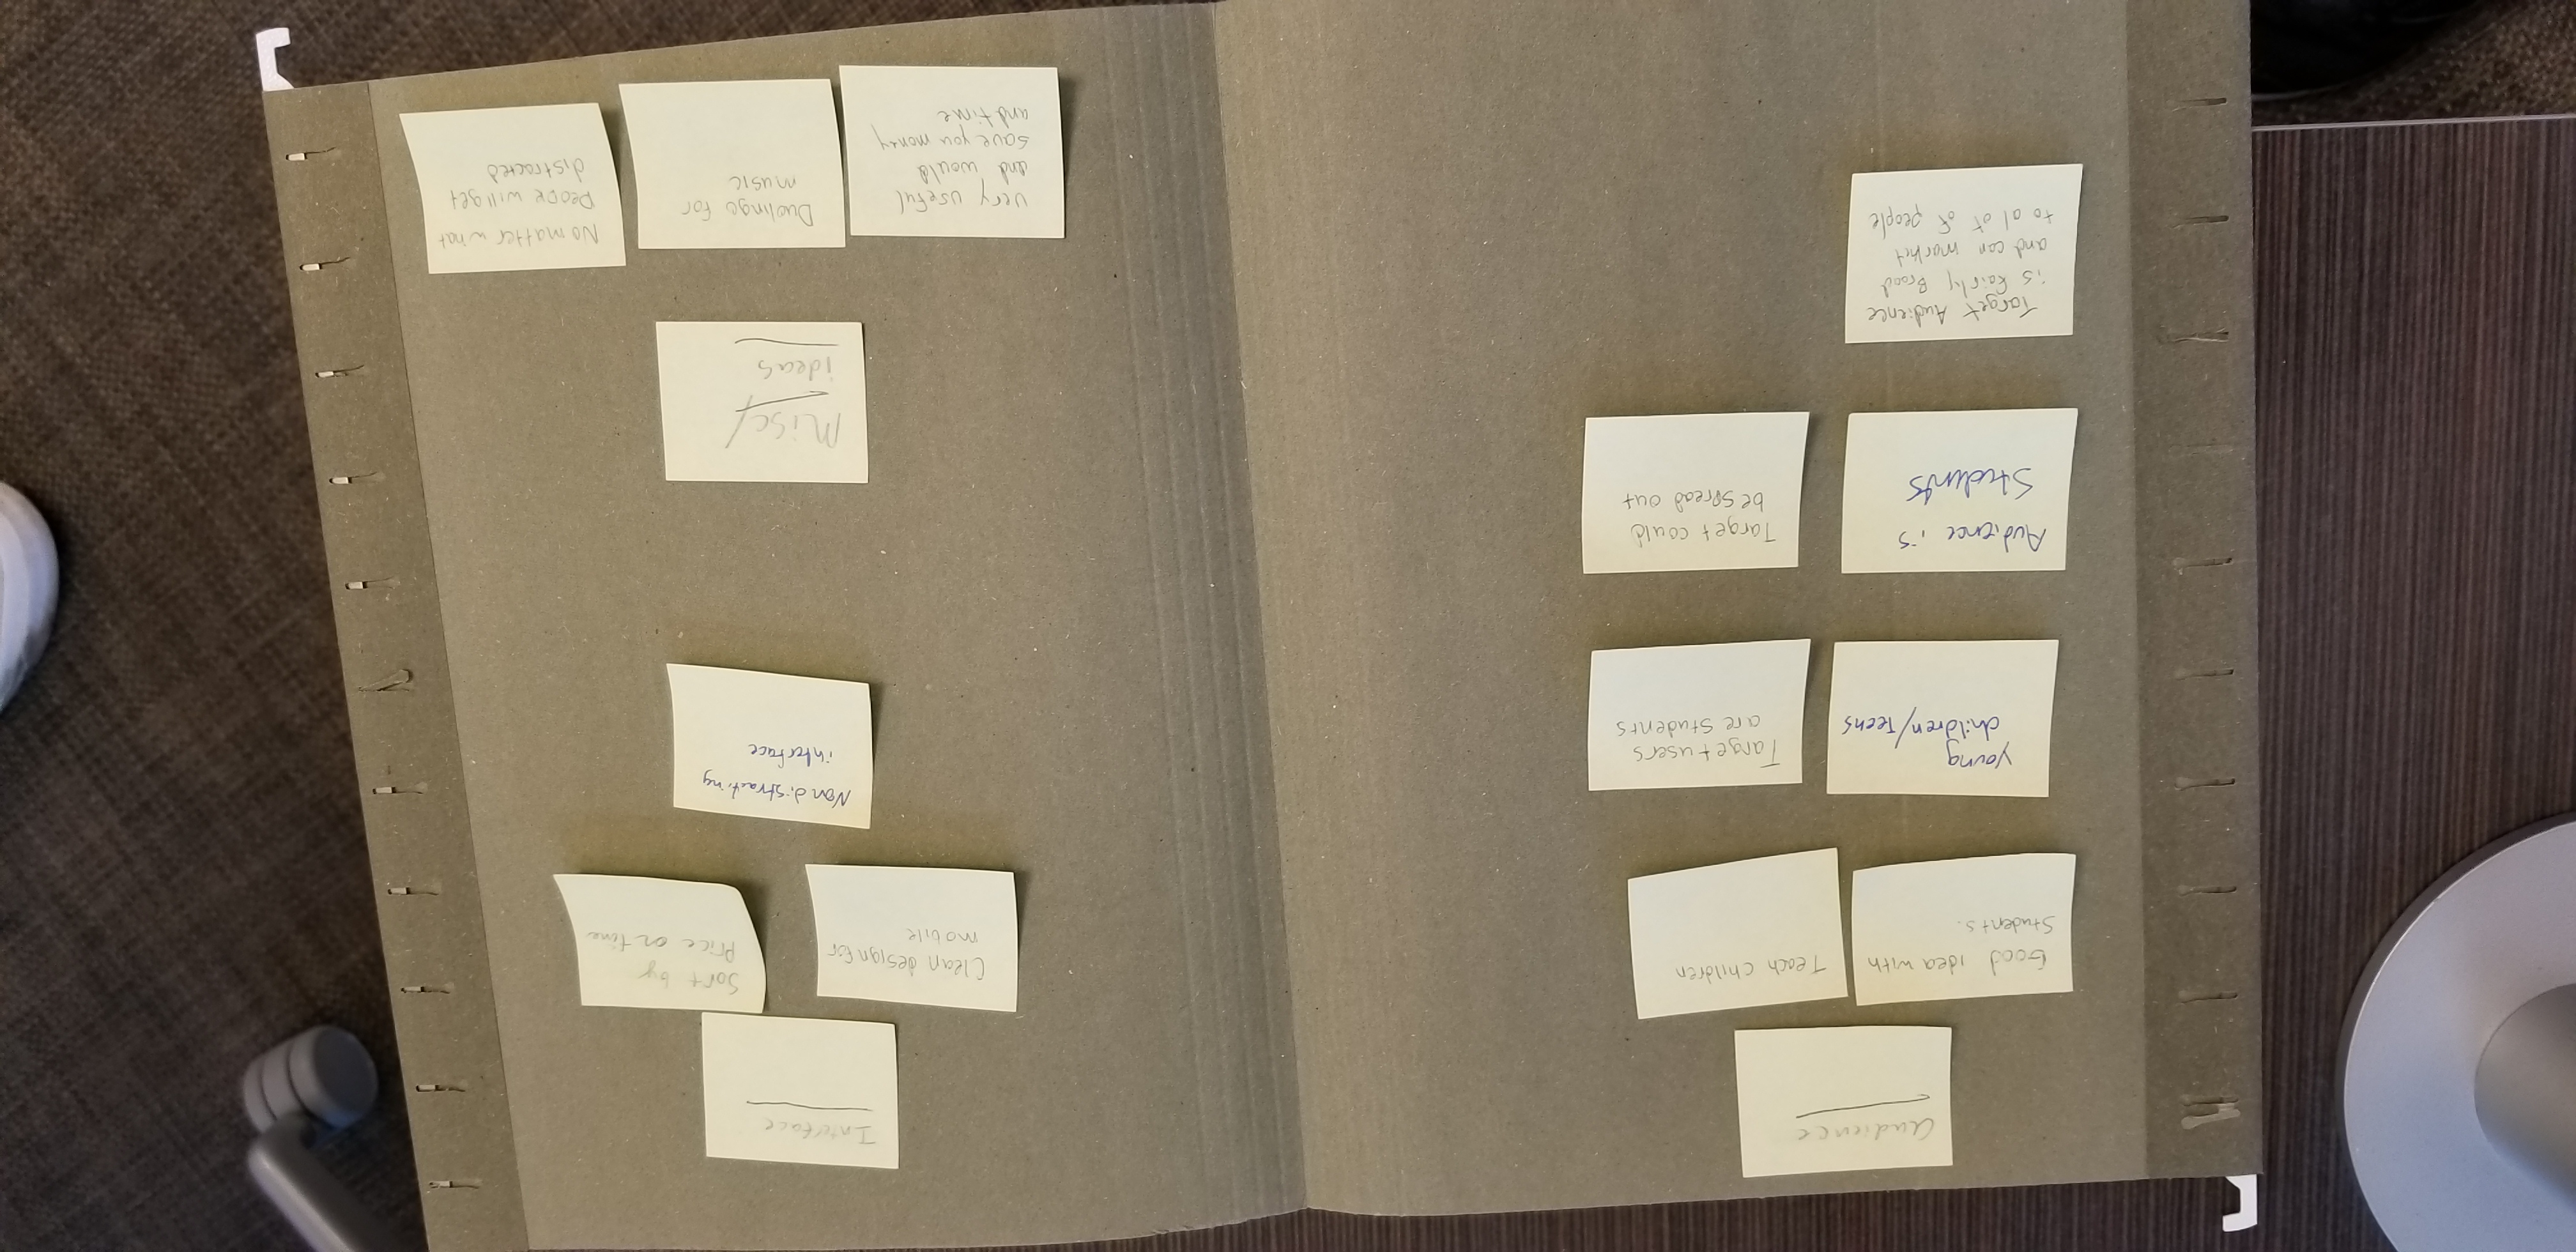 Audience
Good idea with
Students.
Teach children
young
children/Teens
Target users
are Students
Audience is
Students
Target could
be spread out
Target Audience
is fairly Broad
and can market
to al ot of people
Interface
Clean design for
mobile
Sort by
Price or time
Non distracting
interface
Misc/
ideas
very useful
and would
save you money
and time
Duolingo for
music
No matter what
will get
distracted